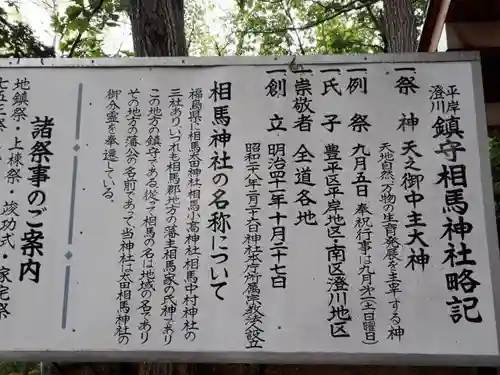 平岸
澄川
鎮守相馬神社略記
一祭　神　天之御中主大神
天地自然、万物の生育発展を主宰する神
一例　祭　九月五日　奉祝行事は九月
一氏　子　豊平区平岸地区・南区澄川地区
一崇敬者　全道各地
一創　立　明治四十一年十月二十七日
昭和二十八年
相馬神社の名称について
福島県に相馬太田神社、相馬小高神社、相馬中村神社の
三社あり、いづれも相馬郡地方の藩主相馬家の氏神であり
この地方の鎮守である。従って相馬の名は地域の名であり
その地方の藩公の名前であって当神社は太田相馬神社の
御分霊を奉遷している。
諸祭事のご案内
地鎮祭・上棟祭・竣功式・家宅祭
七五三祭